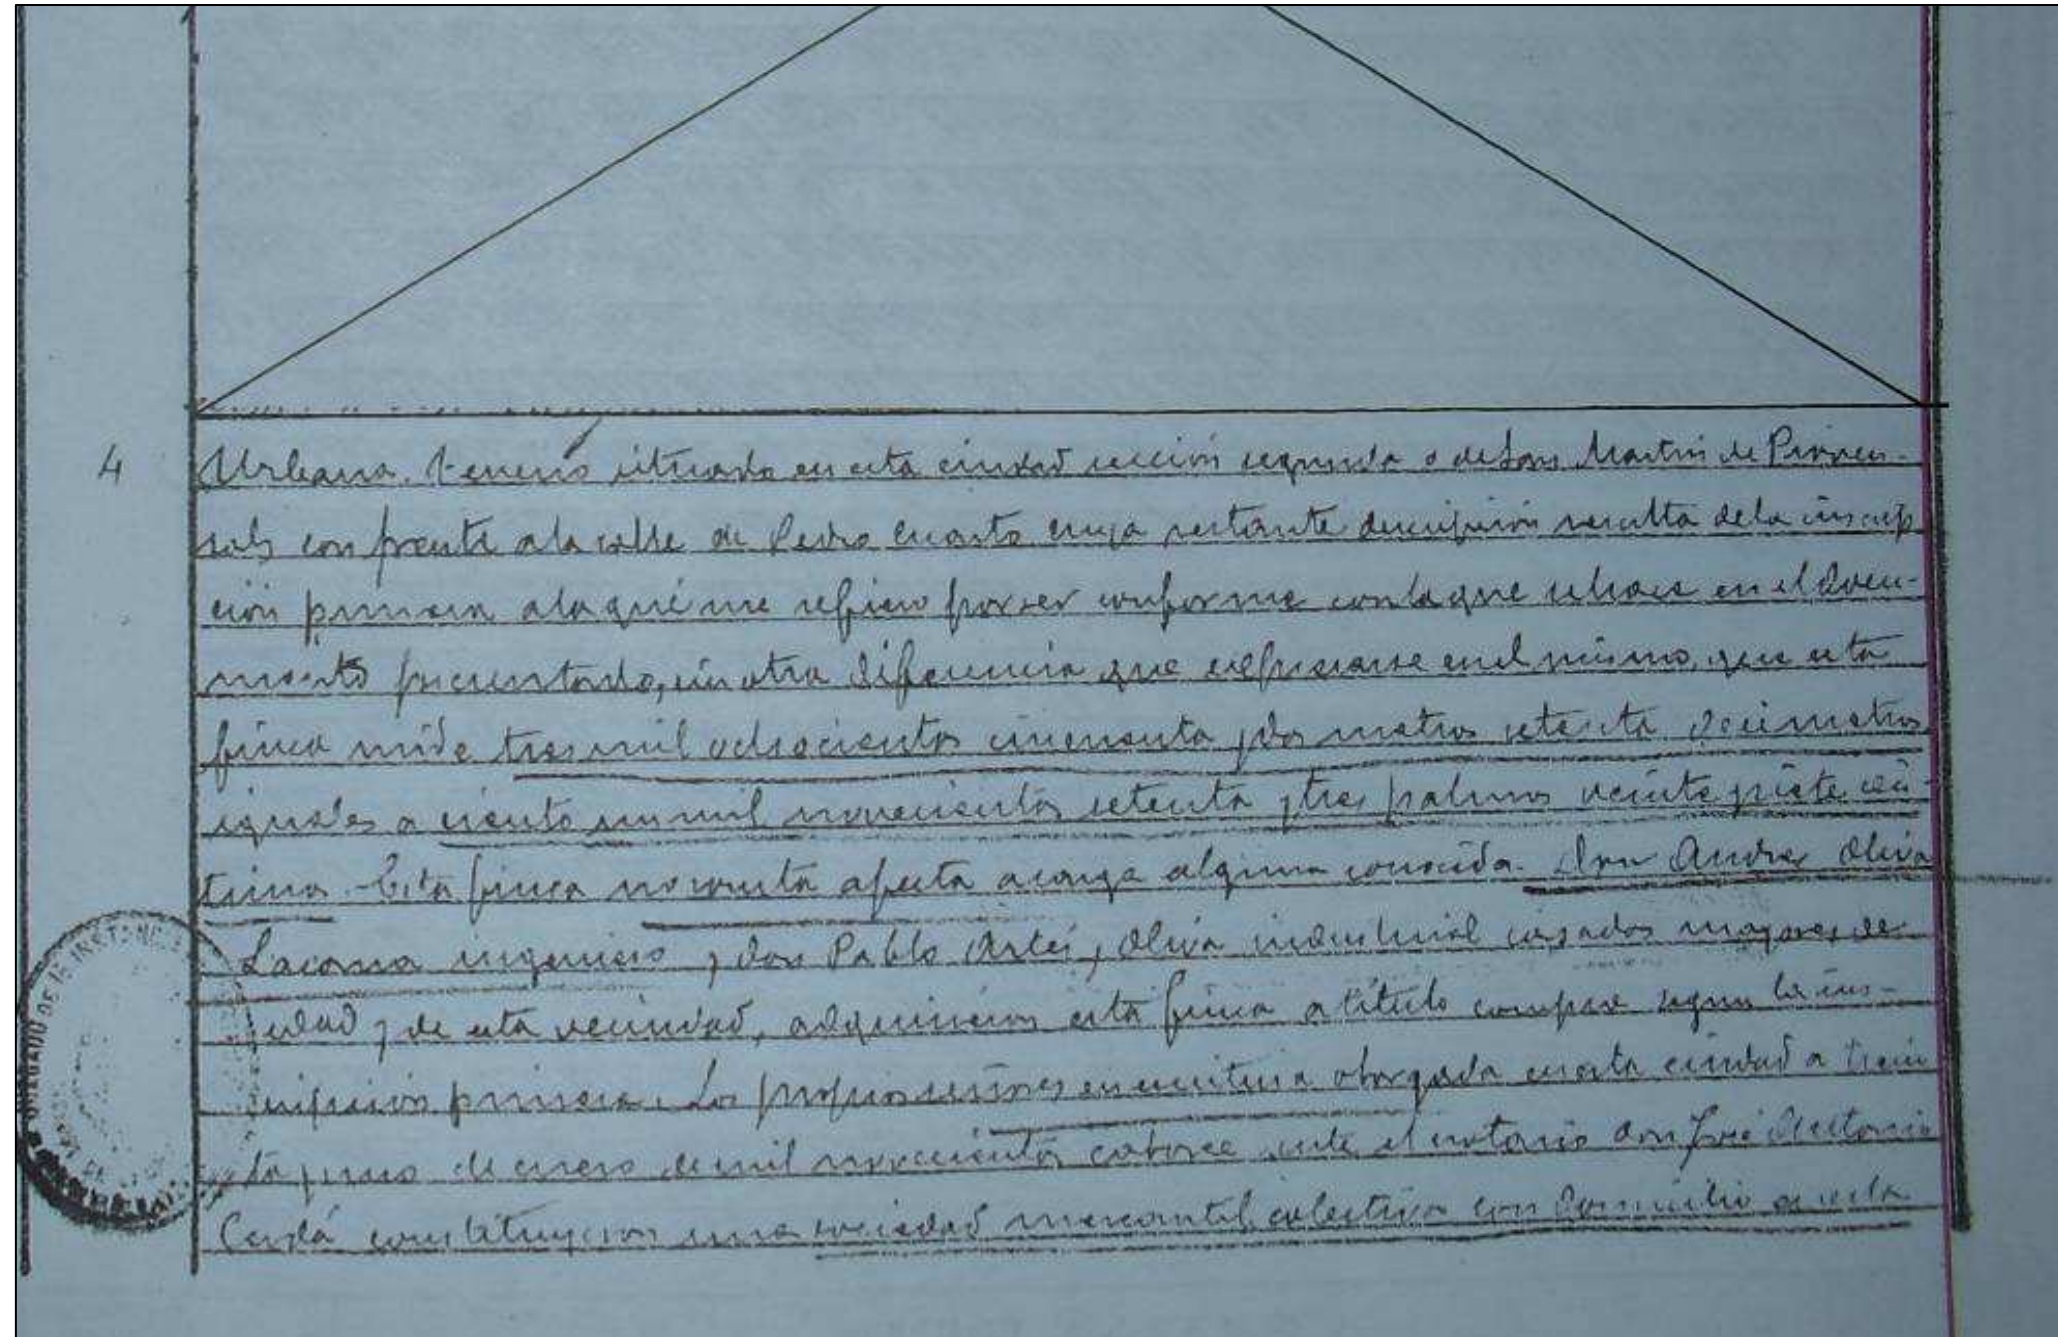 4 Urbana. Terreno situado en esta ciudad sección segunda o de San Martin de Proven-
sals con frente a la calle de Pedro Cuarto cuya restante descripción resulta de la inscrip
ción primera a la que me refiero por ser conforme con la que se hace en el docu-
mento presentado, sin otra diferencia que expresarse en el mismo, que esta
finca mide tres mil ochocientos cincuenta y dos metros setenta decimetros
iguales a ciento un mil novecientos setenta y tres palmos veinte y siete cén-
timos.- Esta finca no consta afecta a carga alguna conocida. Don Andres Oliva
Lacoma ingeniero y don Pablo Artés y Oliva industrial casados mayores de
edad y de esta vecindad, adquirieron esta finca a titulo compra segun la ins-
cripcion primera. Los propios señores en escritura otorgada en esta ciudad a trein
ta y uno de enero de mil novecientos catorce ante el notario don José Antonio
Cerdá constituyeron una sociedad mercantil colectiva con domicilio en esta
JUZGADO DE 1ª INSTANCIA